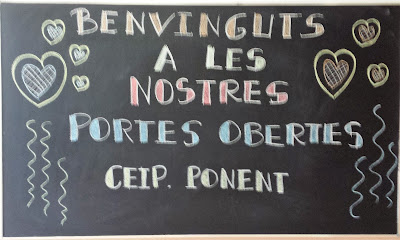 BENVINGUTS
A LES
NOSTRES
PORTES OBERTES
CEIP. PONENT